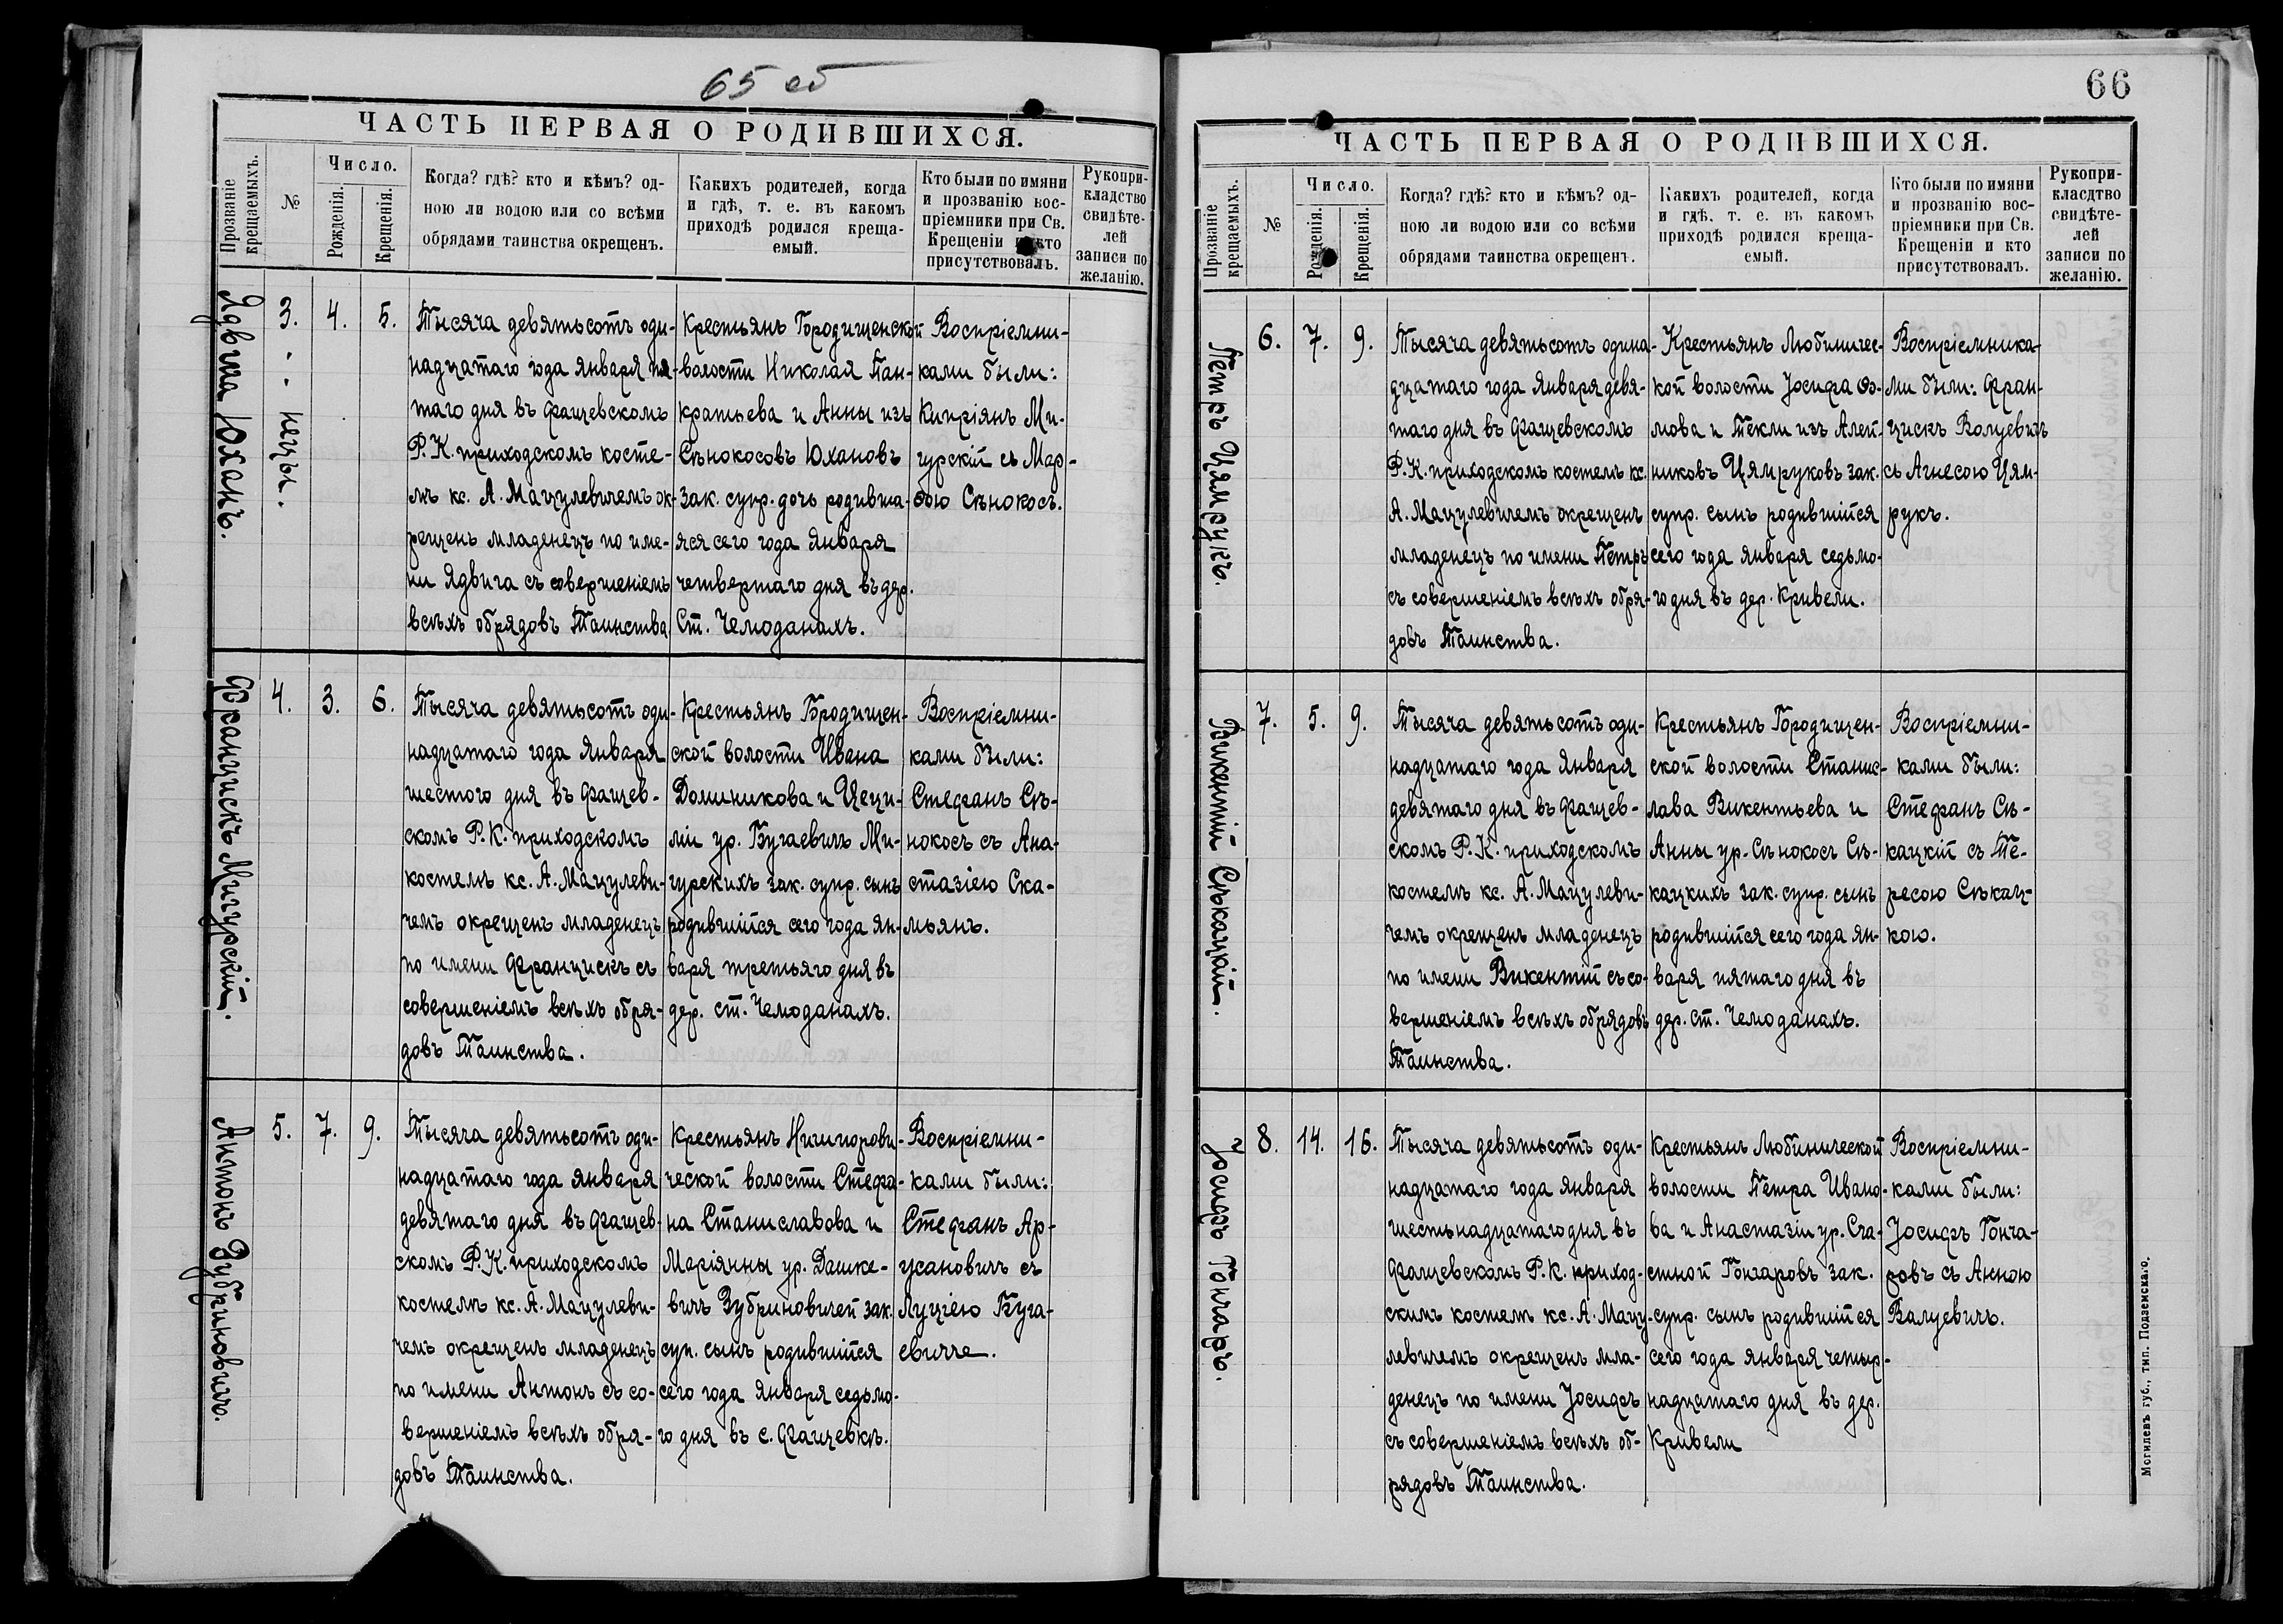 65 об
ЧАСТЬ ПЕРВАЯ О РОДИВШИХСЯ.
Прозваніе крещаемыхъ.
№
Число.
Рожденія.
Крещенія.
Когда? гдѣ? кто и кѣмъ? од-
ною ли водою или со всѣми
обрядами таинства окрещенъ.
Какихъ родителей, когда
и гдѣ, т. е. въ какомъ
приходѣ родился креща-
емый.
Кто были по имяни
и прозванію вос-
пріемники при Св.
Крещеніи и кто
присутствовалъ.
Рукопри-
кладство
свидѣте-
лей
записи по
желанію.
Ядвига Юханъ.
3.
4.
5.
Тысяча девятьсотъ оди-
надцатаго года января пя-
таго дня въ Фащевскомъ
Р. К. приходскомъ косте-
лѣ кс. А. Мацулевичемъ ок-
рещенъ младенецъ по име-
ни Ядвига съ совершеніемъ
всѣхъ обрядовъ Таинства
Крестьянъ Городищенской
волости Николая Пан-
кратьева и Анны изъ
Сѣнокосовъ Юхановъ
зак. супр. дочь родивша-
яся сего года Января
четвертаго дня въ дер.
Ст. Чемоданахъ.
Воспріемни-
ками были:
Кипріянъ Ми-
гурскій съ Мар-
ѳою Сѣнокосъ.
Францискъ Мигурскій.
4.
3.
6.
Тысяча девятьсотъ оди-
надцатаго года Января
шестого дня въ Фащев-
скомъ Р. К. приходскомъ
костелѣ кс. А. Мацулеви-
чемъ окрещенъ младенецъ
по имени Францискъ съ
совершеніемъ всѣхъ обря-
довъ Таинства.
Крестьянъ Городищен-
ской волости Ивана
Доминикова и Цеци-
ліи ур. Бугаевичъ Ми-
гурскихъ зак. супр. сынъ
родившійся сего года ян-
варя третьяго дня въ
дер. ст. Чемоданахъ.
Воспріемни-
ками были:
Стефанъ Сѣ-
нокосъ съ Ана-
стазіею Ска-
мьянъ.
Антонъ Зубриновичъ.
5.
7.
9.
Тысяча девятьсотъ оди-
надцатаго года января
девятаго дня въ Фащев-
скомъ Р. К. приходскомъ
костелѣ кс. А. Мацулеви-
чемъ окрещенъ младенецъ
по имени Антонъ съ со-
вершеніемъ всѣхъ обря-
довъ Таинства.
Крестьянъ Ничипорови-
ческой волости Стефа-
на Станиславова и
Маріянны ур. Дашке-
вичъ Зубриновичей зак.
суп. сынъ родившійся
сего года Января седьмо-
го дня въ с. Фащевкѣ.
Воспріемни-
ками были:
Стефанъ Ар-
цсановичъ съ
Луціею Буга-
евичъ.
66
ЧАСТЬ ПЕРВАЯ О РОДИВШИХСЯ.
Прозваніе крещаемыхъ.
№
Число.
Рожденія.
Крещенія.
Когда? гдѣ? кто и кѣмъ? од-
ною ли водою или со всѣми
обрядами таинства окрещенъ.
Какихъ родителей, когда
и гдѣ, т. е. въ какомъ
приходѣ родился креща-
емый.
Кто были по имяни
и прозванію вос-
пріемники при Св.
Крещеніи и кто
присутствовалъ.
Рукопри-
класдтво
свидѣте-
лей
записи по
желанію.
Петръ Цямрукъ.
6.
7.
9.
Тысяча девятьсотъ одина-
дцатаго года Января девя-
таго дня въ Фащевскомъ
Р. К. приходскомъ костелѣ кс.
А. Мацулевичемъ окрещенъ
младенецъ по имени Петръ
съ совершеніемъ всѣхъ обря-
довъ Таинства.
Крестьянъ Любиничес-
кой волости Іосифа Ѳо-
мова и Текли изъ Алей-
никовъ Цямруковъ зак.
супр. сынъ родившійся
сего года января седьмо-
го дня въ дер. Кривели.
Воспріемника-
ми были: Фран-
цискъ Валуевичъ
съ Агнесою Цям-
рукъ.
Викентій Сѣкацкій.
7.
5.
9.
Тысяча девятьсотъ оди-
надцатаго года Января
девятаго дня въ Фащев-
скомъ Р. К. приходскомъ
костелѣ кс. А. Мацулеви-
чемъ окрещенъ младенецъ
по имени Викентій съ со-
вершеніемъ всѣхъ обрядовъ
Таинства.
Крестьянъ Городищен-
ской волости Станис-
лава Викентьева и
Анны ур. Сѣнокосъ Сѣ-
кацкихъ зак. супр. сынъ
родившійся сего года ян-
варя пятаго дня въ
дер. ст. Чемоданахъ.
Воспріемни-
ками были:
Стефанъ Сѣ-
кацкій съ Те-
ресою Сѣкац-
кою.
Іосифъ Гончаръ.
8.
14.
16.
Тысяча девятьсотъ оди-
надцатаго года Января
шестьнадцатаго дня въ
Фащевскомъ Р. К. приход-
скимъ костелѣ кс. А. Мацу-
левичемъ окрещенъ мла-
денецъ по имени Іосифъ
съ совершеніемъ всѣхъ об-
рядовъ Таинства.
Крестьянъ Любинической
волости Петра Ивано-
ва и Анастазіи ур. Сча-
стной Гончаровъ зак.
супр. сынъ родившійся
сего года января четыр-
надцатаго дня въ дер.
Кривели
Воспріемни-
ками были:
Іосифъ Гонча-
ровъ съ Анною
Валуевичъ.
Могилевъ губ., тип. Подземскаго.